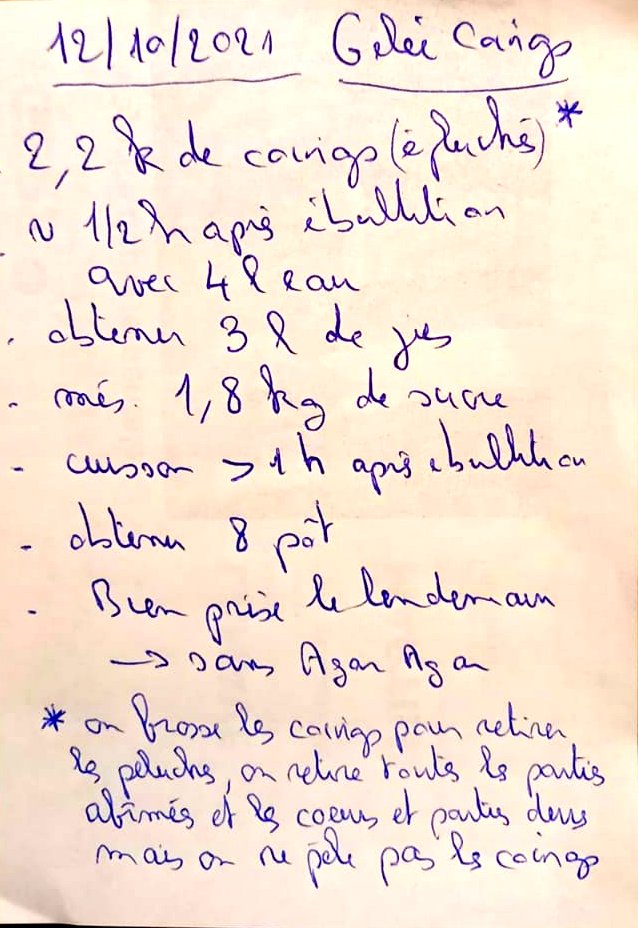 12/10/2021 Gelée Coings
2,2 k de coings (épluchés) *
~ 1/2 h après ébullition
avec 4 l eau
. obtenu 3 l de jus
- més. 1,8 kg de sucre
- cuisson > 1 h après ébullition
- obtenu 8 pôt
- Bien prise le lendemain
→ sans Agar Agar
* on brosse les coings pour retirer
les peluches, on retire toutes les parties
abîmés et les coeurs et parties dures
mais on ne pèle pas les coings